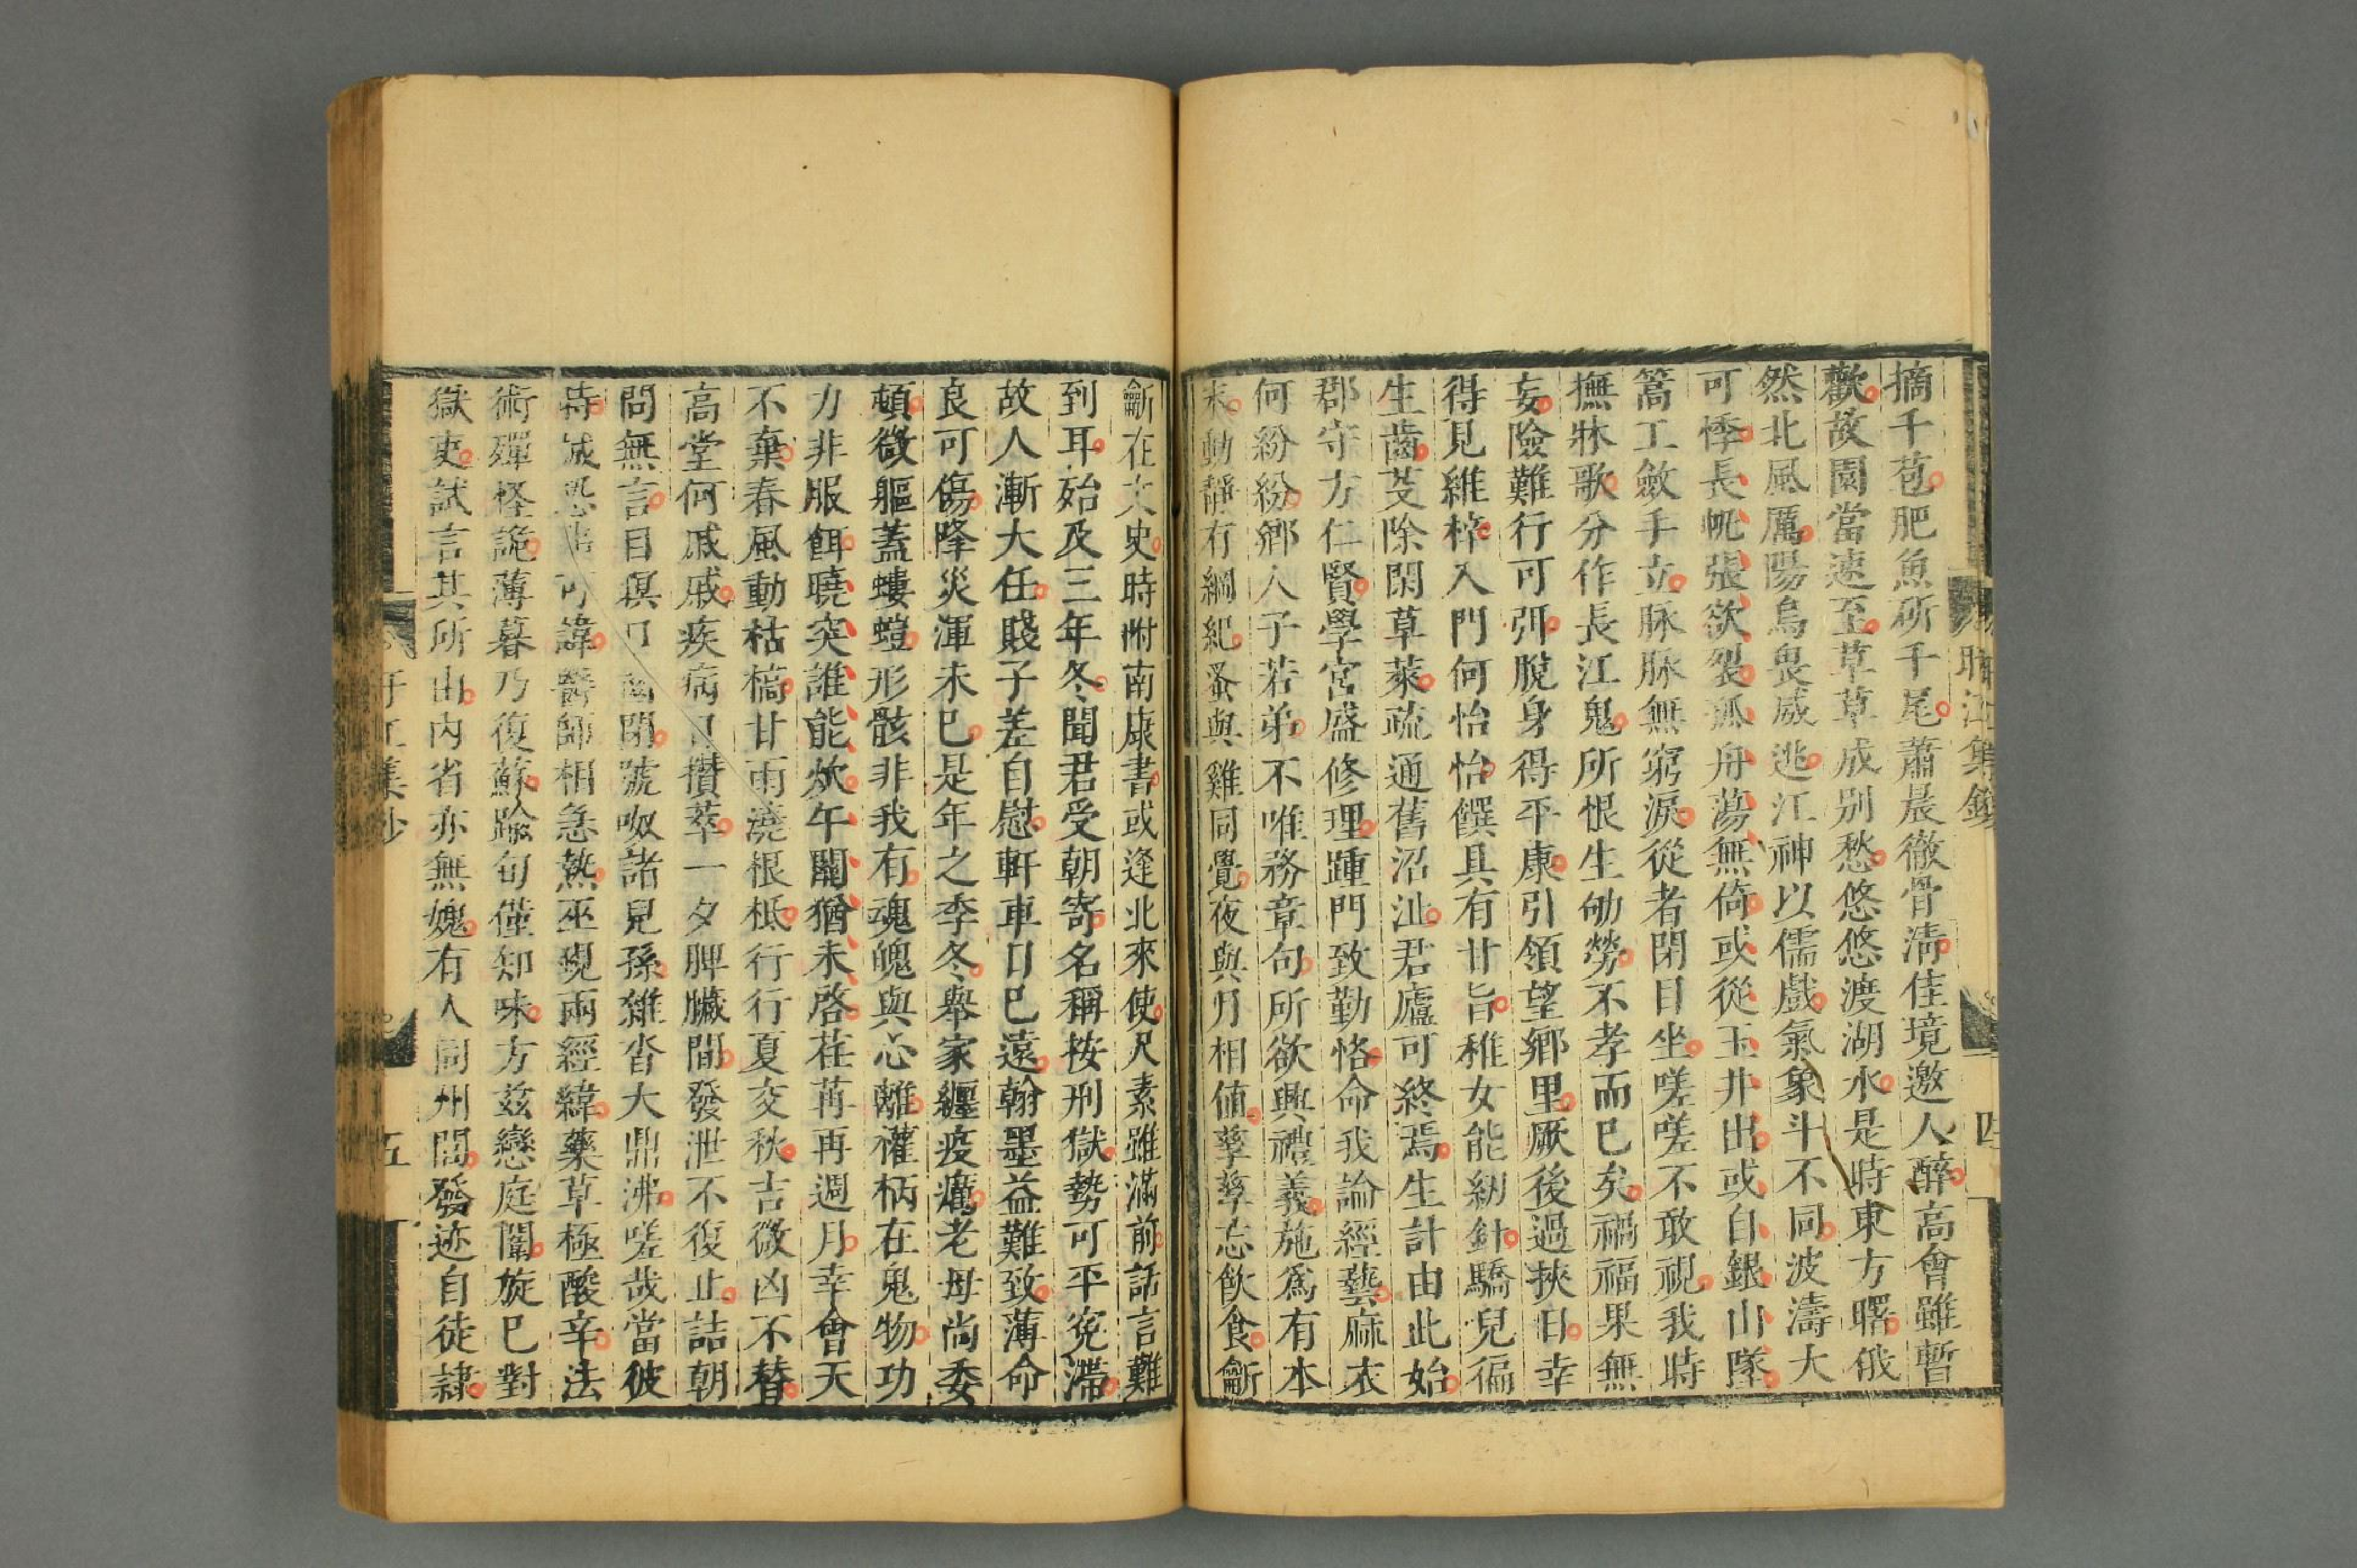 摘千苞肥魚斫千尾蕭晨徹骨清佳境邀人醉高會雖暫
歡故園當速至草草成别愁悠悠渡湖水是時東方曙俄
然北風厲陽烏畏威逃江神以儒戲氣象斗不同波濤大
可悸長帆張欲裂孤舟蕩無倚或從玉井出或自銀山墜
篙工斂手立脉脉無窮淚從者閉目坐嗟嗟不敢視我時
撫牀歌分作長江鬼所恨生劬勞不孝而已矣禍福果無
妄險難行可弭脫身得平康引領望鄉里厥後過挾日幸
得見維梓入門何怡怡饌具有甘旨稚女能紉針驕兒徧
生齒芟除閑草萊疏通舊沼沚君廬可終焉生計由此始
郡守方仁賢學宮盛修理踵門致勤恪命我論經藝麻衣
何紛紛鄉人子若弟不唯務章句所欲興禮義施爲有本
末動靜有綱紀蚤與雞同覺夜與月相値孳孳忘飲食齗
齗在文史時附南康書或逢北來使尺素雖滿前話言難
到耳始及三年冬聞君受朝寄名稱按刑獄勢可平冤滯
故人漸大任賤子差自慰軒車日已遠翰墨益難致薄命
良可傷降災渾未已是年之季冬舉家纏疫癘老母尚委
頓微軀蓋螻螘形骸非我有魂魄與心離權柄在鬼物功
力非服餌曉突誰能炊午關猶未啓荏苒再週月幸會天
不棄春風動枯槁甘雨澆根柢行行夏交秋吉微凶不替
高堂何戚戚疾病日攢萃一夕脾臟間發泄不復止詰朝
問無言目瞑口函閉號呶諸兒孫雜沓大鼎沸嗟哉當彼
時 可諱醫師相急熱巫覡兩經緯藥草極酸辛法
術殫怪詭薄暮乃復蘇踰旬僅知味方茲戀庭闈旋已對
獄吏試言其所由内省亦無媿有人同州閭發迹自徒隸
盱江集鈔
四
盱江集鈔
五